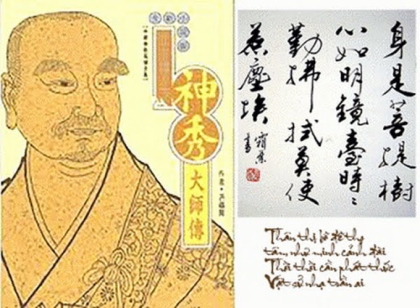 神秀
大師傳
身是菩提樹
心如明鏡臺時々
勤拂拭莫使
惹塵埃
Thân thị bồ đề thụ
tâm như minh cảnh đài
Thời thời cần phất thức
Vật sử nhạ trần ai